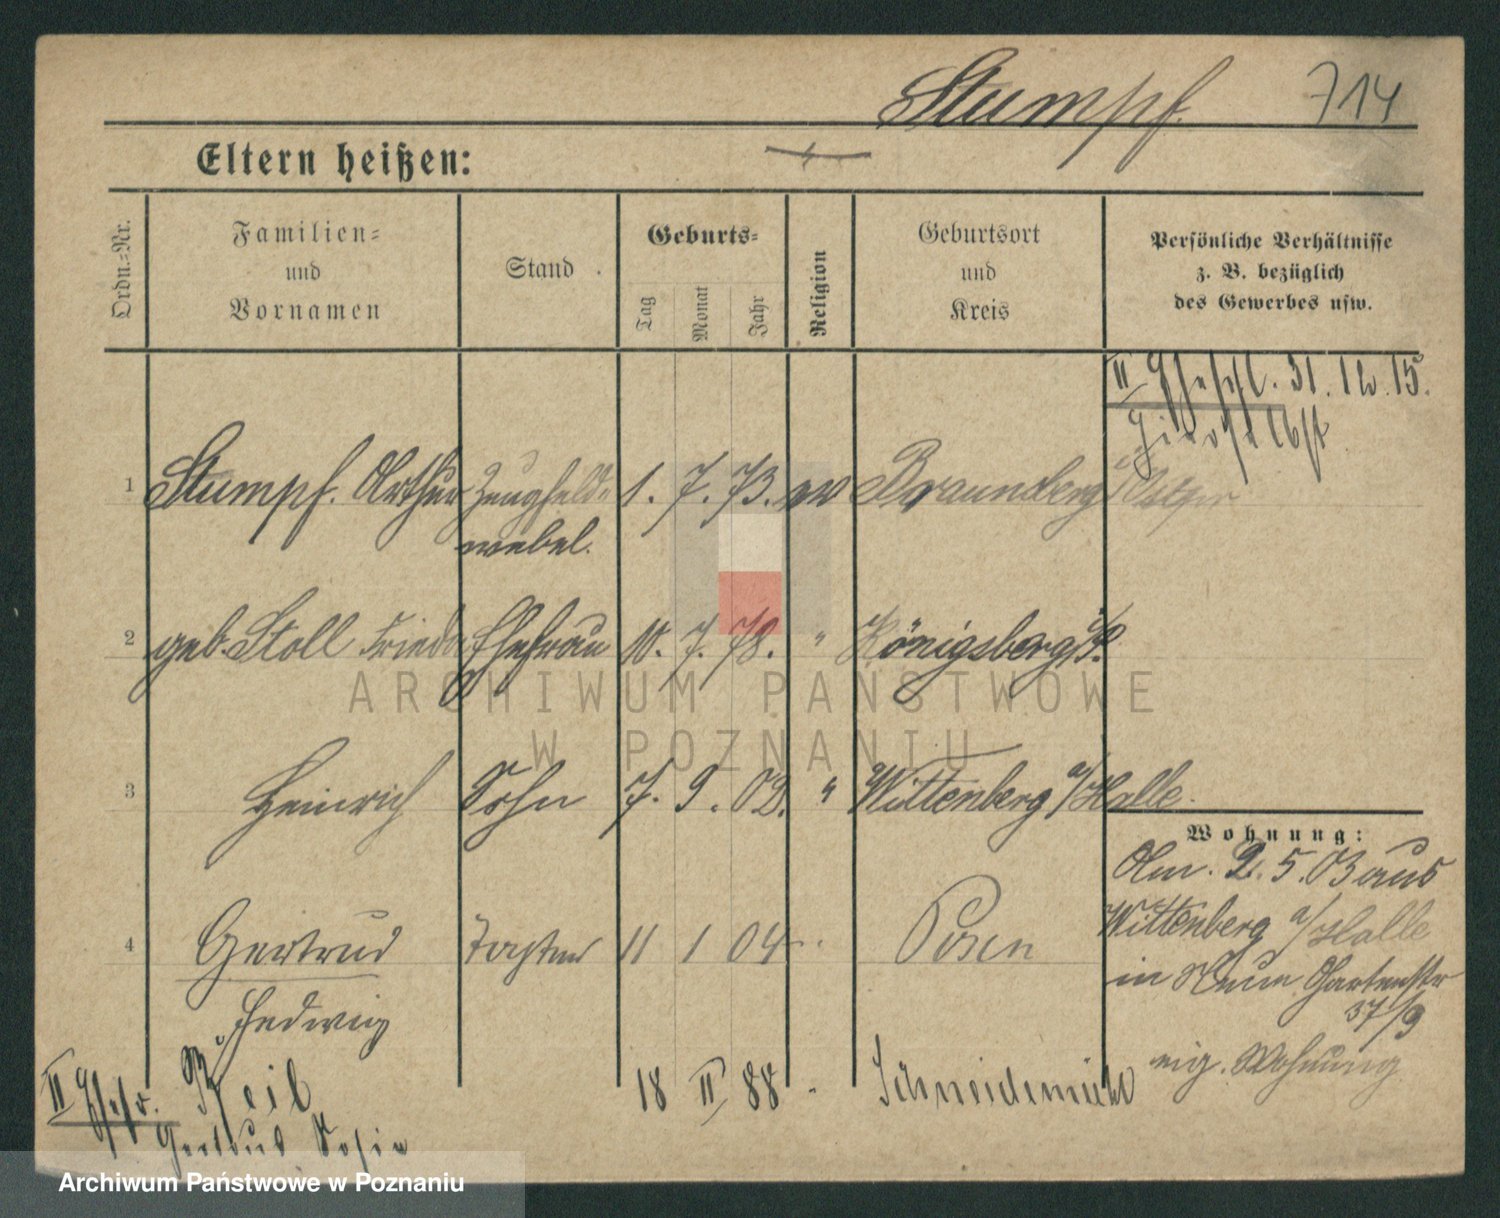 Stumpf. 714
Eltern heißen:
Ordn.=Nr.
Familien=
und
Vornamen
Stand
Geburts=
Tag
Monat
Jahr
Religion
Geburtsort
und
Kreis
Persönliche Verhältnisse
z. B. bezüglich
des Gewerbes usw.
II Eheschl. 31. 12. 15.
1 Stumpf. Arthur Zeugfeld= 1. 7. 73. ev Braunsberg i/Ostpr
webel.
2 geb. Stoll Frieda Ehefrau 10. 7. 78. " Königsberg i/P.
ARCHIWUM PAŃSTWOWE
W POZNANIU
3 Heinrich Sohn 7. 9. 02. " Wittenberg a/Halle.
Wohnung:
Am. 2. 5. 03 aus
Wittenberg a/Halle
in Neue Gartenstr
37/9
eig. Wohnung
4 Gertrud Tochter 11 1 04 Posen
Hedwig
II Ehefr. Keil 18 II 88 Schneidemühl
Gertrud
Archiwum Państwowe w Poznaniu